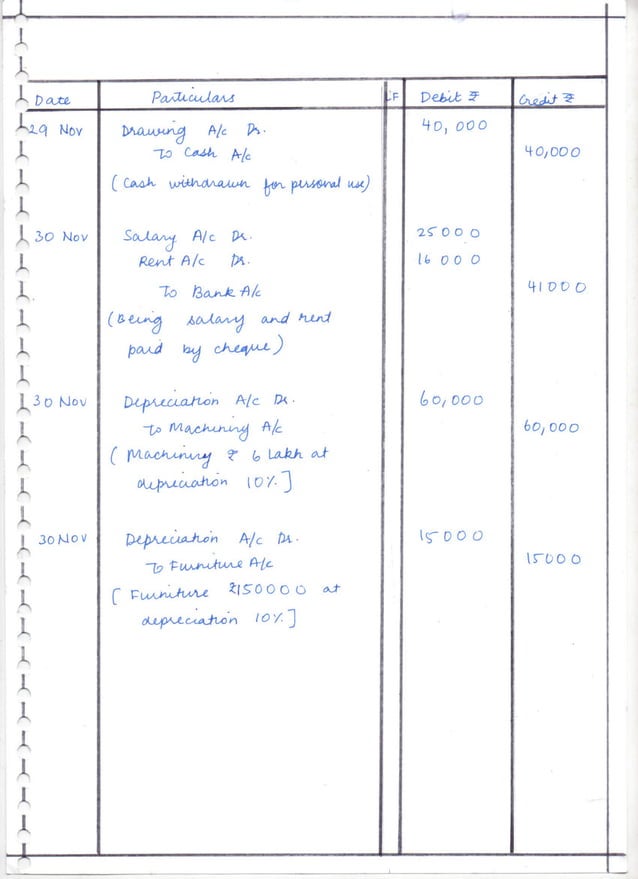 Date Particulars LF Debit ₹ Credit ₹
29 Nov Drawing A/c Dr. 40,000
To Cash A/c 40,000
(Cash withdrawn for personal use)
30 Nov Salary A/c Dr. 25000
Rent A/c Dr. 16000
To Bank A/c 41000
(Being salary and rent
paid by cheque)
30 Nov Depreciation A/c Dr. 60,000
To Machining A/c 60,000
( Machining ₹ 6 Lakh at
depreciation 10%.]
30 NOV Depreciation A/c Dr. 15000
To Furniture A/c 15000
[ Furniture ₹150000 at
depreciation 10%.]